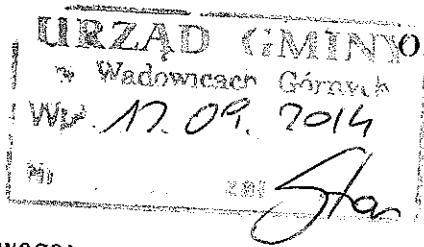 URZĄD GMINY O
w Wadowicach Górnych
Wp. 17.09. 2014
Nr zał